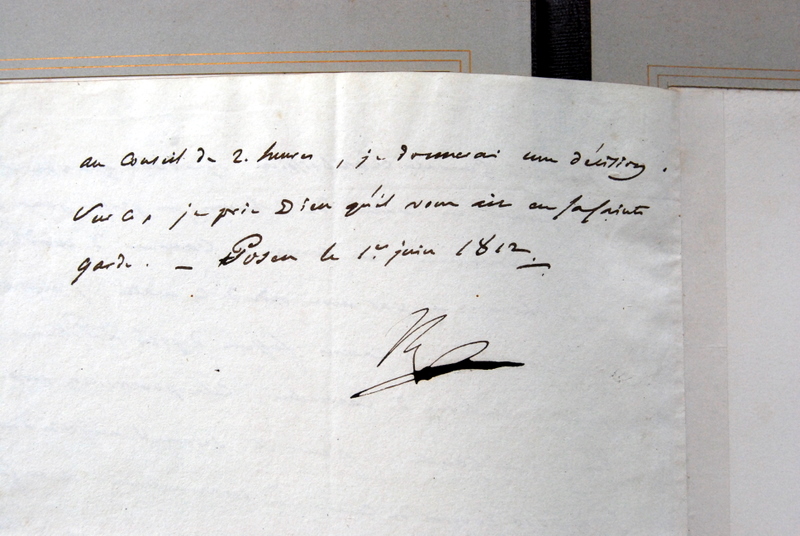 au Conseil de 2. heures, je donnerai une décision.
Sur ce, je prie Dieu qu'il vous ait en sa sainte
garde. — Posen le 1er juin 1812.